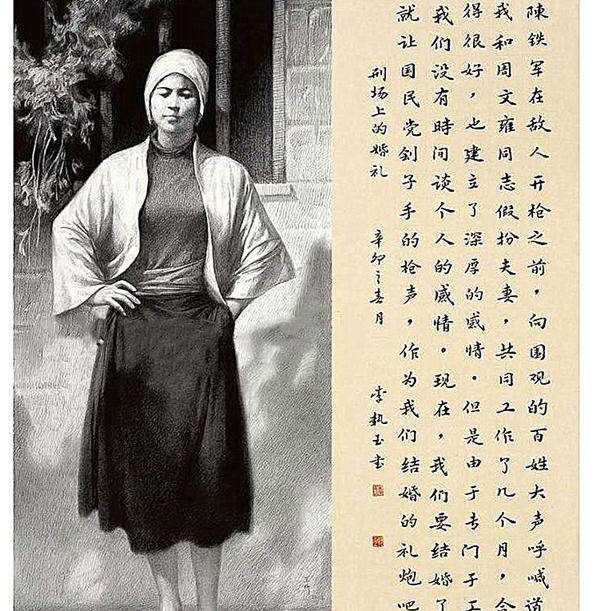 陳铁军在敌人开枪之前，向围观的百姓大声呼喊
我和周文雍同志假扮夫妻，共同工作了几个月，合
得很好，也建立了深厚的感情。但是由于专门于工
我们没有時间谈个人的感情。现在，我们要结婚了
就让国民党刽子手的枪声，作为我们结婚的礼炮吧
刑场上的婚礼 辛卯之春月 李执玉書